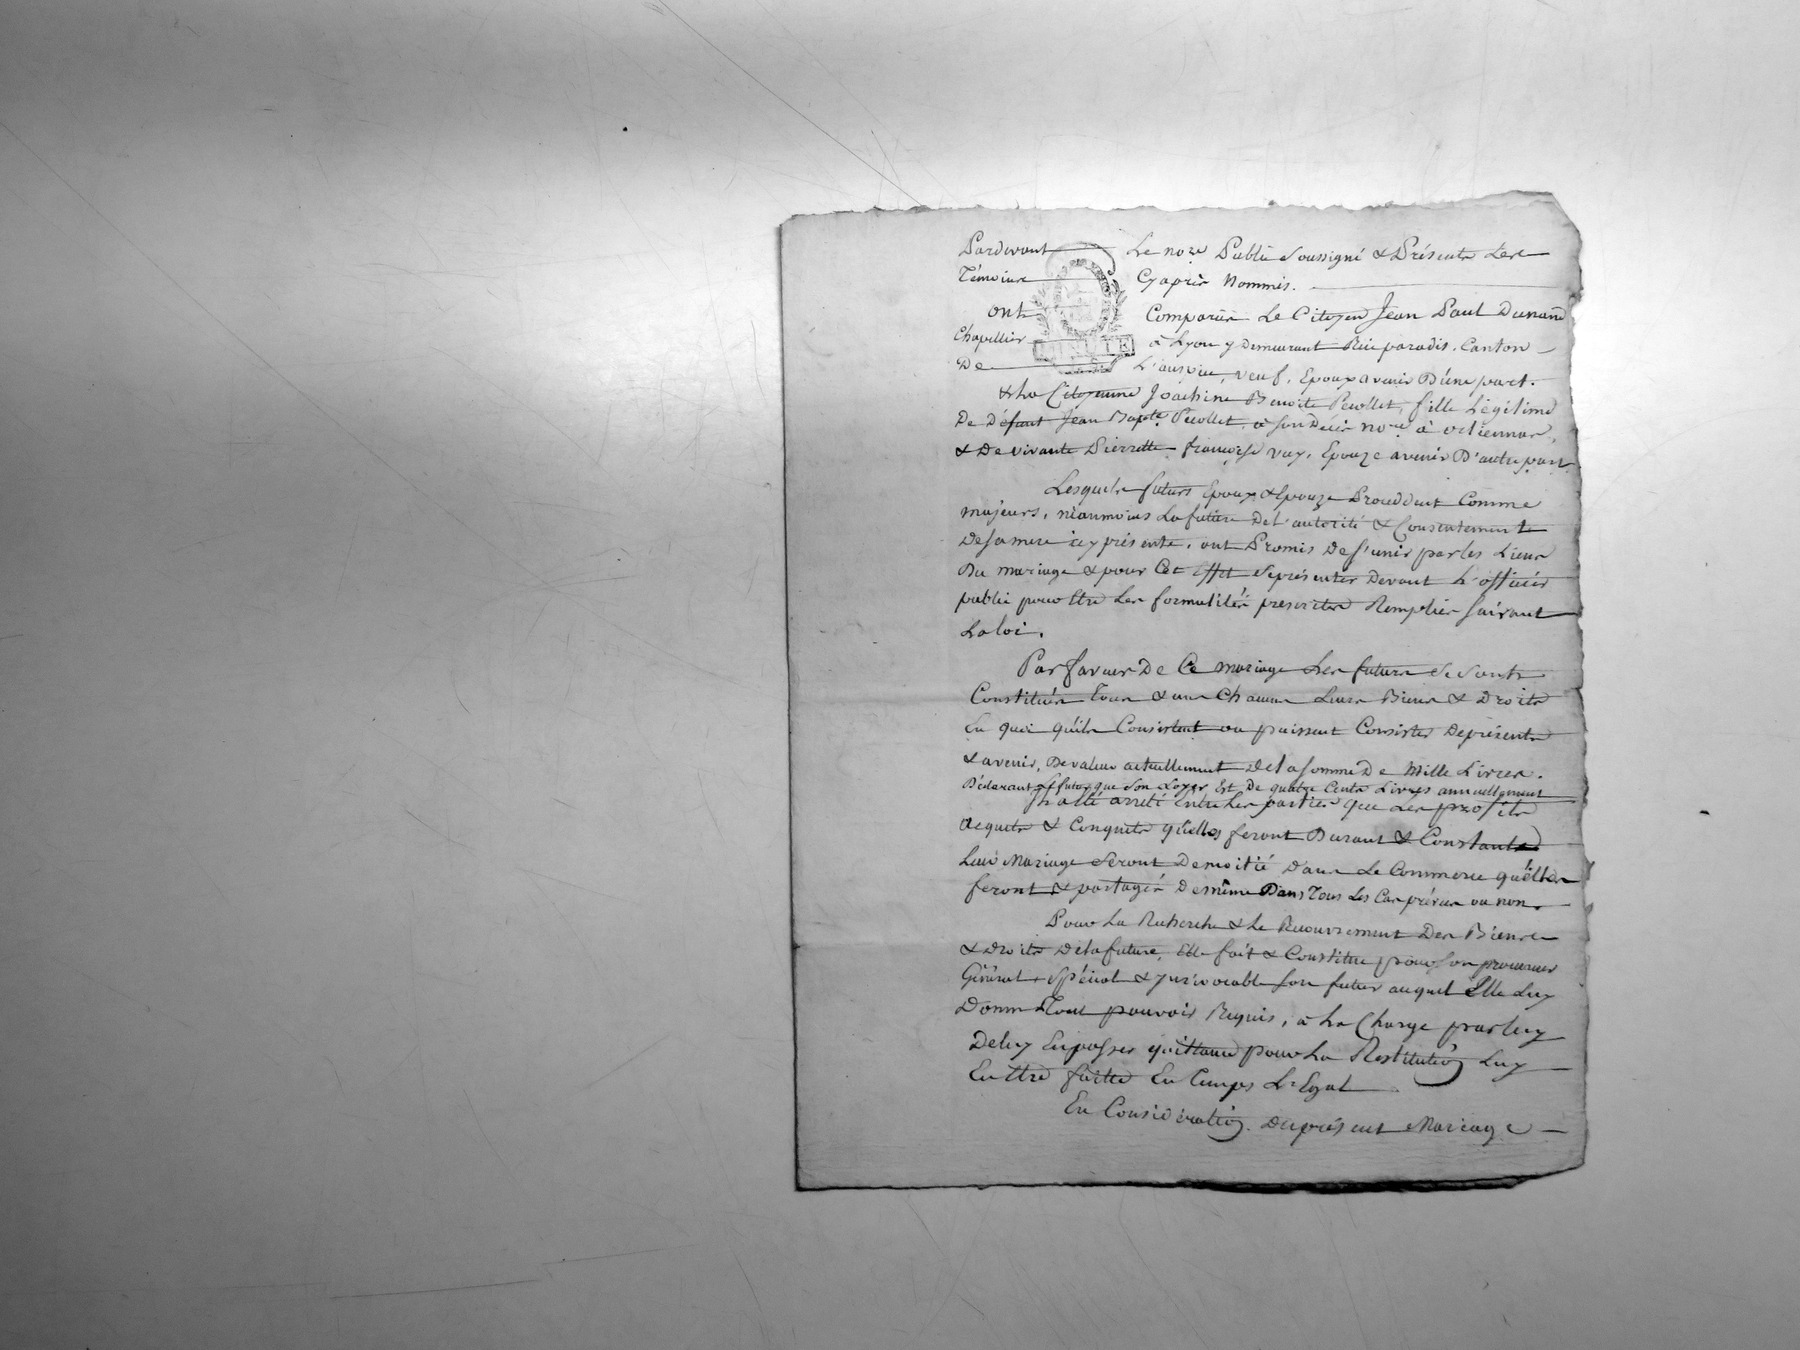 Pardevant Le no.re Public soussigné & Présents Les
Témoins Cyaprès Nommés.
ont Comparus Le Citoyen Jean Paul Dunand
Chapellier à Lyon y Demeurant Rue paradis. Canton
De L'auspice, veuf, Epoux avenir D'une part.
& La Citoyenne Joachine Benoite Perollet, fille Légitime
De Défunt Jean Bapte. Perollet, à son Décès no.re à
& De vivante Pierrette françoise vay, Epouze avenir D'autre part
Lesquels futurs Epoux & Epouze Procedant Comme
majeurs, néanmoins La future De L'autorité & Consentement
De sa mere icy présente, ont Promis De s'unir par les Liens
Du mariage & pour Cet effet se présenter Devant L'officier
public pour Etre Les formalités prescrites Remplies suivant
La loi.
Par faveur De Ce mariage Les futurs se sont
Constitués Tous & un Chacun Leurs Biens & Droits
En quoi qu'ils Consistent ou puissent Consister De présent
& avenir, De valeur actuellement De la somme De Mille Livres.
Déclarant Le futur que son Loyer Est De quatre Cents Livres annuellement
Il a été arreté Entre Les parties que Les profits
acquets & Conquets qu'elles feront Durant & Constant
Leur Mariage seront De moitié Dans Le Commerce qu'elles
feront & partagés De même Dans Tous Les Cas prévus ou non.
Pour La Recherche & Le Recouvrement Des Biens
& Droits De la future, Elle fait & Constitue pour son procureur
Général & Spécial & Irrévocable son futur auquel Elle Luy
Donne Tout pouvoir Requis, à La Charge par luy
De luy En passer quittance pour La Restitution Luy
En Etre faitte En Temps Légal
En Considération Du présent Mariage